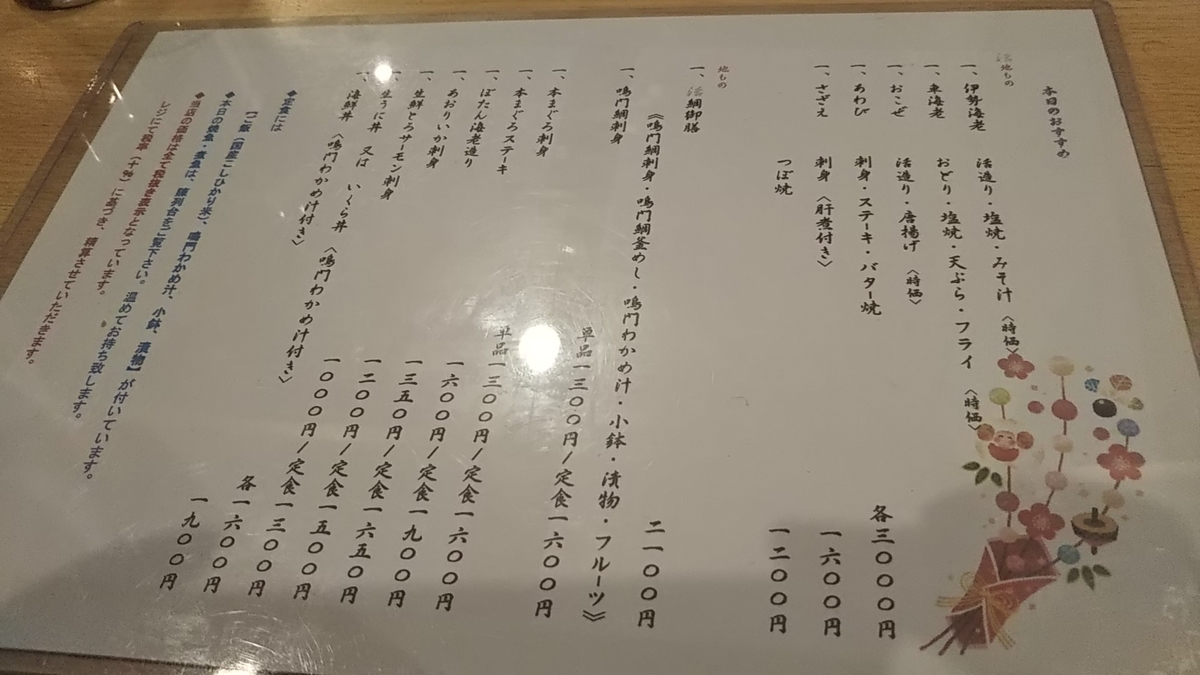 本日のおすすめ
活地もの
一、伊勢海老 活造り・塩焼・みそ汁 〈時価〉
一、車海老 おどり・塩焼・天ぷら・フライ 〈時価〉
一、おこぜ 活造り・唐揚げ 〈時価〉
一、あわび 刺身・ステーキ・バター焼 各三〇〇〇円
一、さざえ 刺身〈肝煮付き〉 一六〇〇円
つぼ焼 一二〇〇円
地もの
一、活鯛御膳 二一〇〇円
《鳴門鯛刺身・鳴門鯛釜めし・鳴門わかめ汁・小鉢・漬物・フルーツ》
一、鳴門鯛刺身 単品一三〇〇円/定食一六〇〇円
一、本まぐろ刺身 単品一三〇〇円/定食一六〇〇円
一、本まぐろステーキ 一六〇〇円/定食一九〇〇円
一、ぼたん海老造り 一三五〇円/定食一六五〇円
一、あおりいか刺身 一二〇〇円/定食一五〇〇円
一、生鮮とろサーモン刺身 一〇〇〇円/定食一三〇〇円
一、生うに丼 又は いくら丼 〈鳴門わかめ汁付き〉 各一六〇〇円
一、海鮮丼 〈鳴門わかめ汁付き〉 一九〇〇円
◆定食には
【ご飯(国産こしひかり米)、鳴門わかめ汁、小鉢、漬物】が付いています。
◆本日の焼魚・煮魚は、陳列台をご覧下さい。温めてお持ち致します。
◆当店の価格は全て税抜き表示となっています。
レジにて税率(十%)に基づき、精算させていただきます。